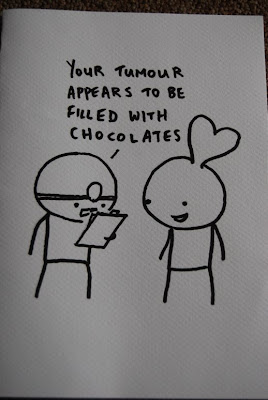 YOUR TUMOUR
APPEARS TO BE
FILLED WITH
CHOCOLATES